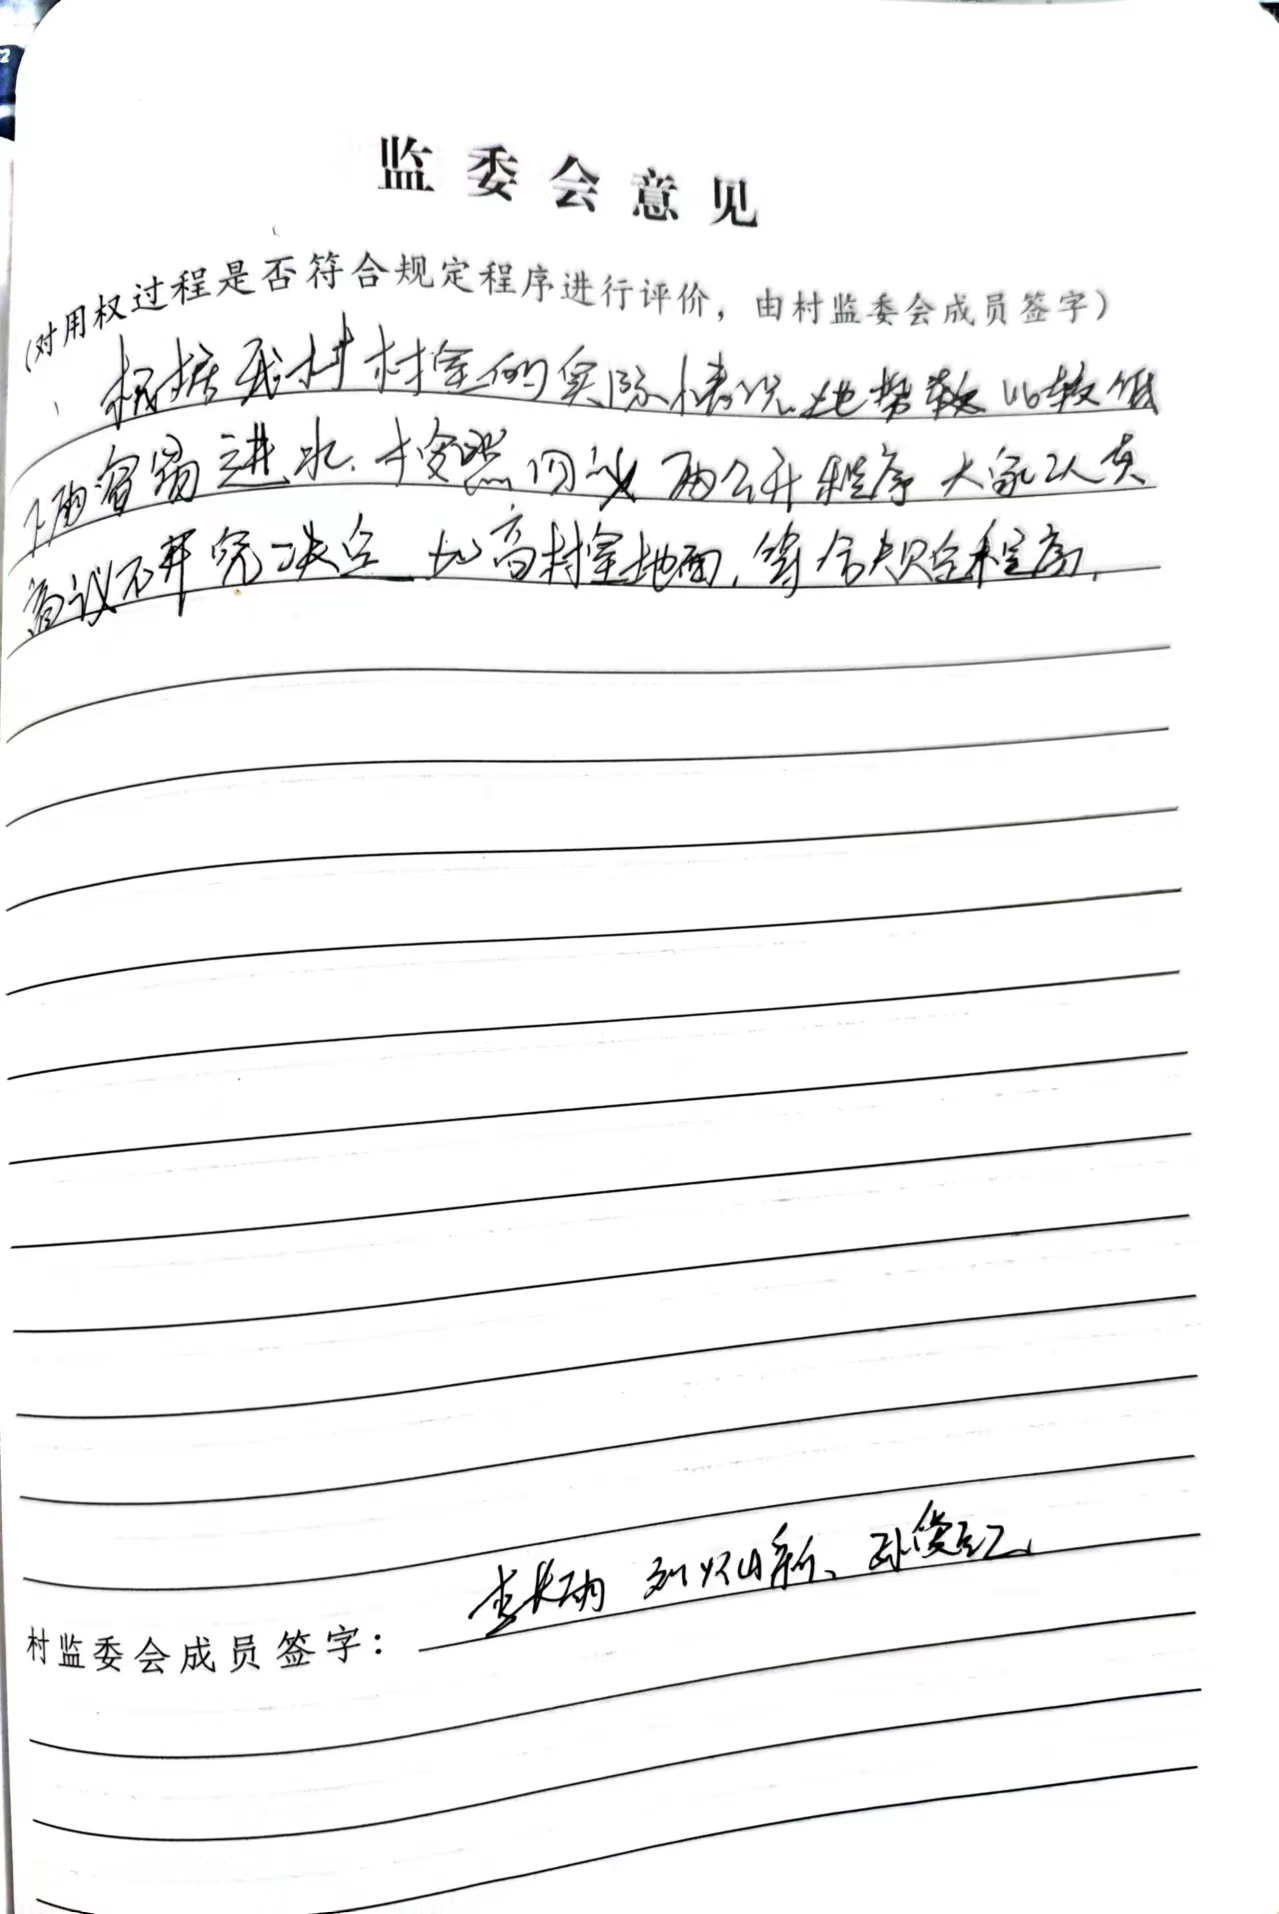 监委会意见
(对用权过程是否符合规定程序进行评价，由村监委会成员签字)
根据我村村室的实际情况.地势较比较低
下雨容易进水.按照四议两公开程序大家认真
商议研究决定加高村室地面,符合规定程序.
村监委会成员签字：李长雨 刘怀新、孙俊红